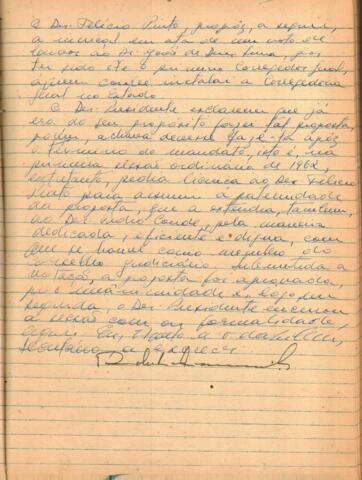 O Des. Felício Pinto, propôs, a seguir,
a inserção em ata de um voto de
louvor ao Dr. José de
ter sido ele o primeiro Corregedor Geral,
a quem coube instalar a Corregedoria
Geral no Estado.
O Des. Presidente esclareceu que já
era do seu propósito fazer tal proposta,
porém, achava deveria fazê-la após
o término do mandato, isto é, na
primeira sessão ordinária de 1962,
entretanto, pedia licença ao Des. Felício
Pinto para assumir a paternidade
da proposta, que a estendia, também,
ao Des. Conde, pela maneira
dedicada, eficiente e digna, com
que se houve como membro do
Conselho Judiciário. Submetida a
votação, a proposta foi aprovada,
por unanimidade e, logo, em
seguida, o Des. Presidente encerrou
a sessão com as formalidades
Eu,
Secretário, a escrevi.